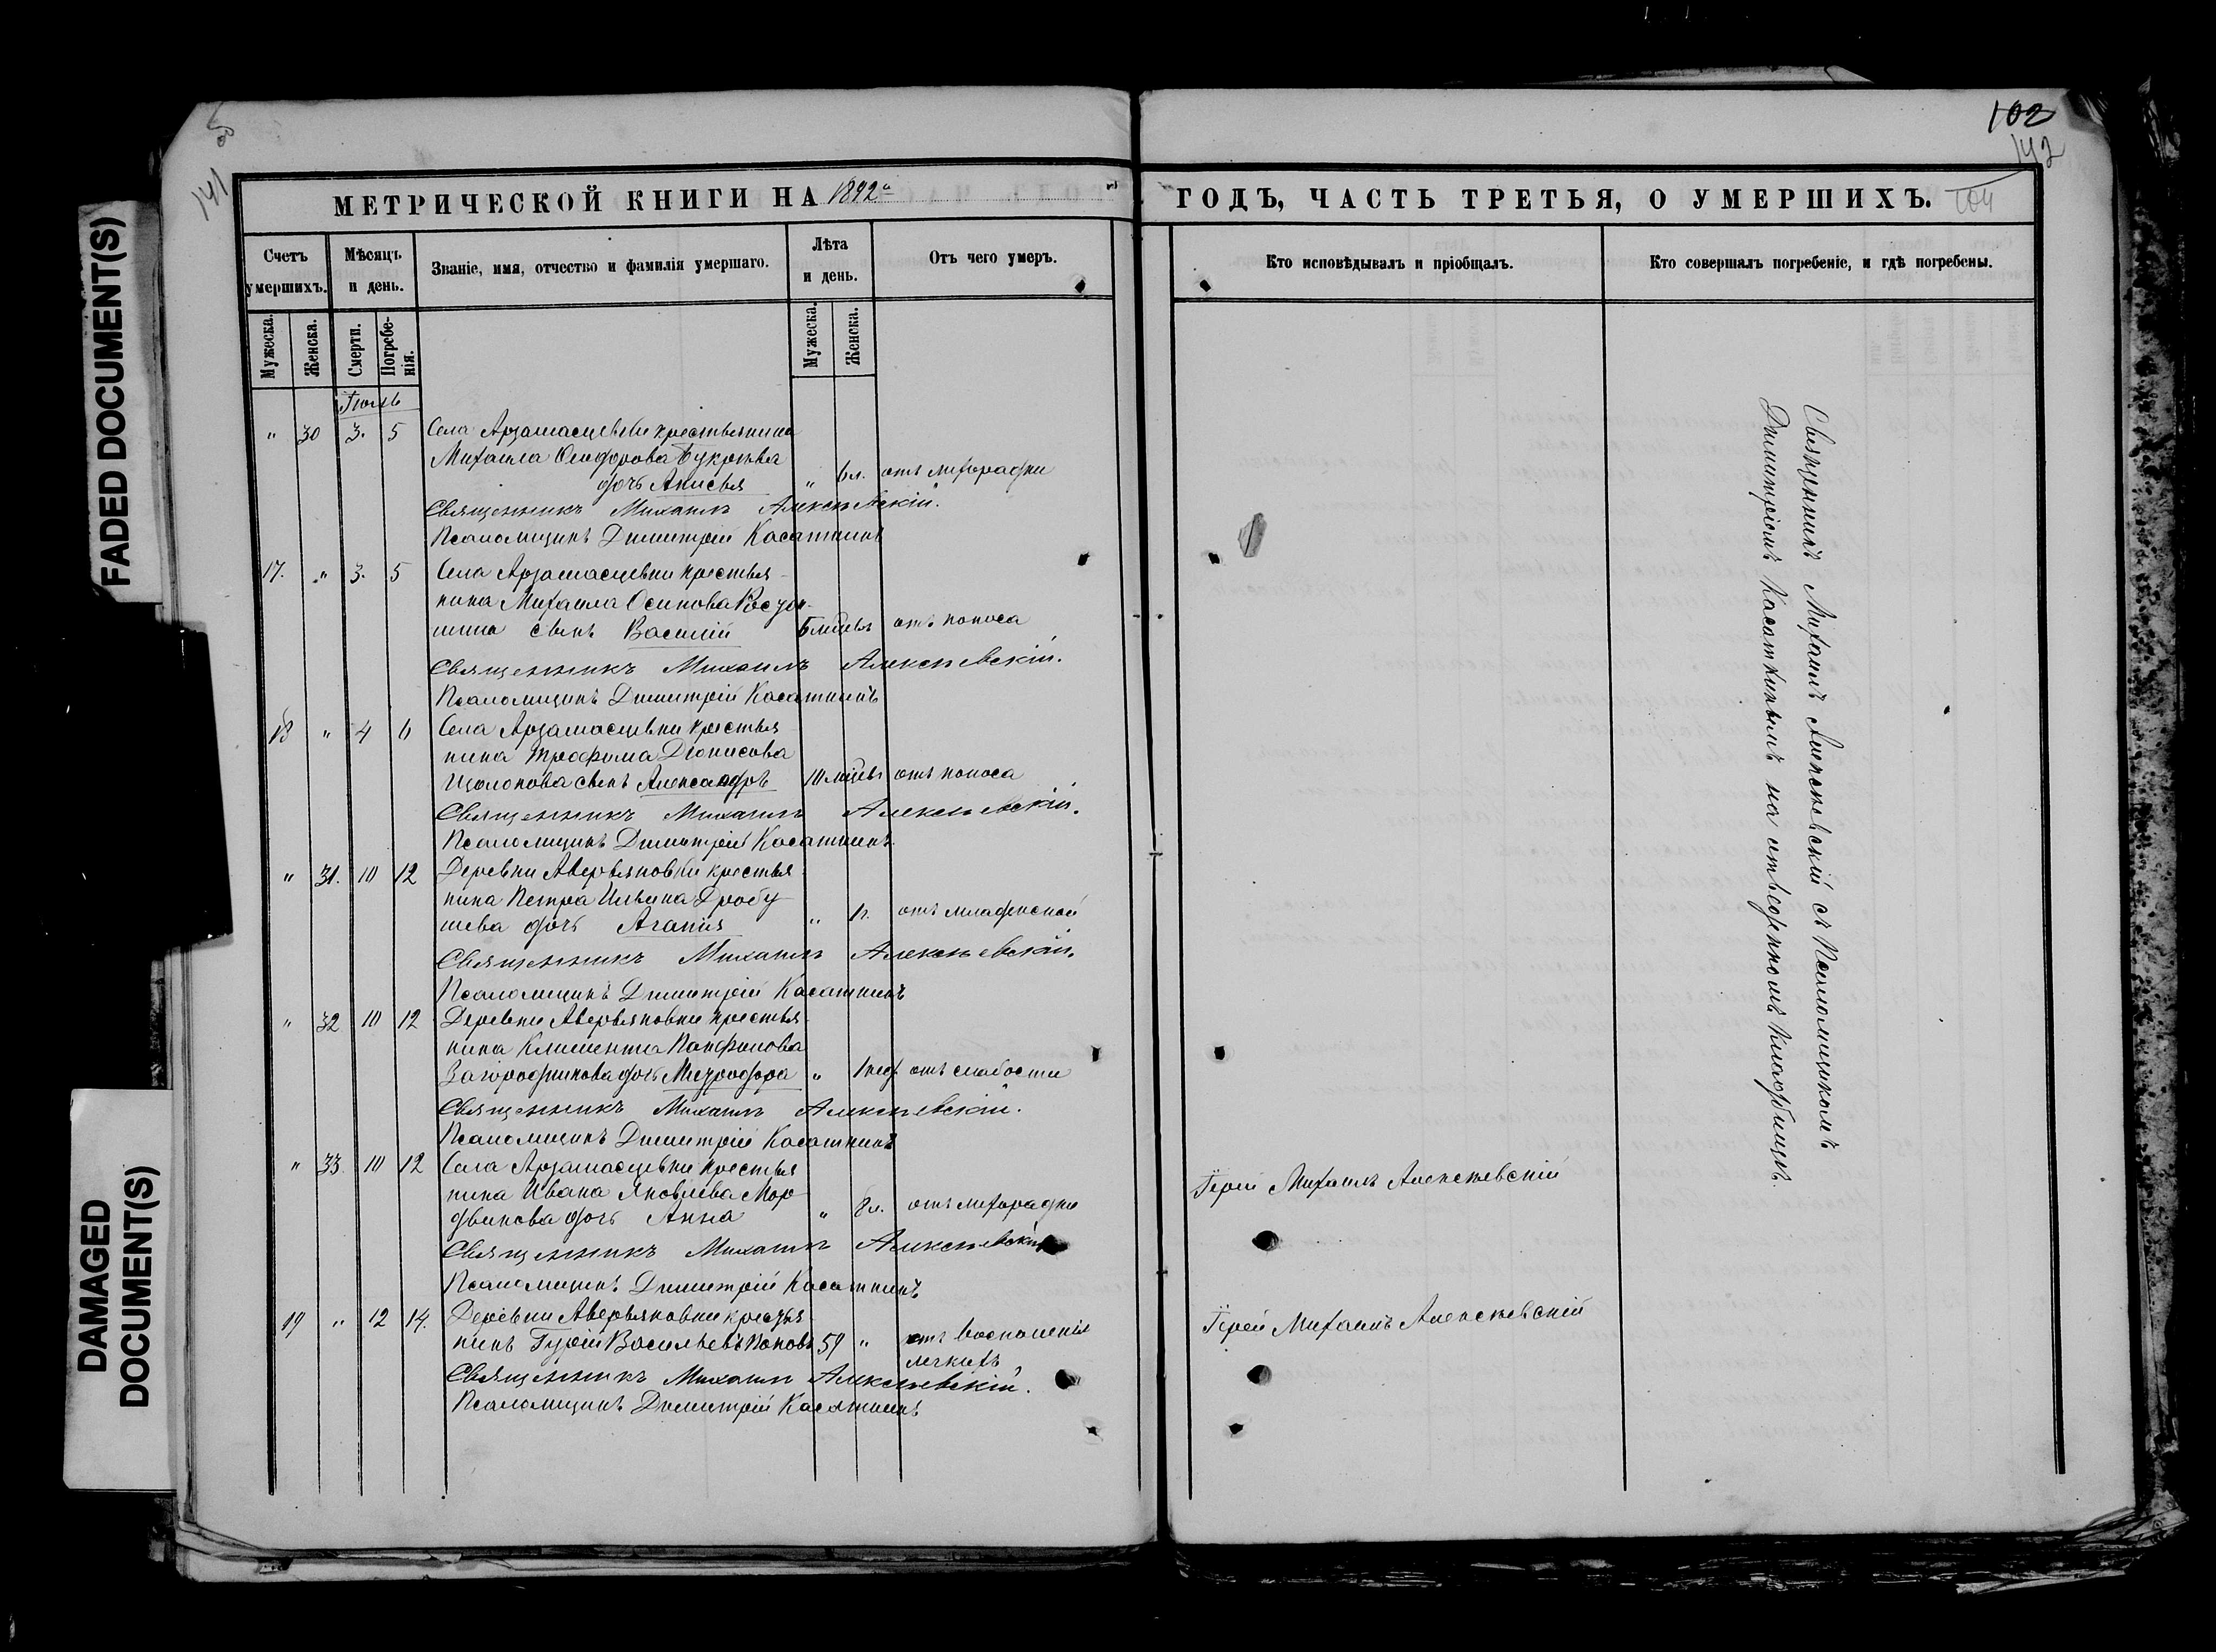 FADED DOCUMENT(S)
DAMAGED
DOCUMENT(S)
141
102
142
104
МЕТРИЧЕСКОЙ КНИГИ НА 1892 ГОДЪ, ЧАСТЬ ТРЕТЬЯ, О УМЕРШИХЪ.
Счетъ умершихъ.
Мѣсяцъ и день.
Званіе, имя, отчество и фамилія умершаго.
Лѣта и день.
Отъ чего умеръ.
Кто исповѣдывалъ и пріобщалъ.
Кто совершалъ погребеніе, и гдѣ погребены.
Мужеска.
Женска.
Смерти.
Погребенія.
Мужеска.
Женска.
Іюль
" 30 3. 5 Села Арзамасцевки крестьянина
Михаила Ѳеодорова Букрѣева
дочь Анисья " 6 л. отъ лихорадки
Священникъ Михаилъ Алексѣевскій.
Псаломщикъ Димитрій Касаткинъ
17. " 3. 5 Села Арзамасцевки крестья-
нина Михаила Осипова
сынъ Василій 5 мѣсяц. отъ поноса
Священникъ Михаилъ Алексѣевскій.
Псаломщикъ Димитрій Касаткинъ
18 " 4 6 Села Арзамасцевки крестья-
нина Трофима Діонисова
Щолокова сынъ Александръ 10 мѣсяц. отъ поноса
Священникъ Михаилъ Алексѣевскій.
Псаломщикъ Димитрій Касаткинъ
" 31. 10 12 Деревни Аверьяновки крестья-
нина Петра Ильина Дробу-
шева дочь Агапія " 1 г. отъ младенской
Священникъ Михаилъ Алексѣевскій.
Псаломщикъ Димитрій Касаткинъ
" 32 10 12 Деревни Аверьяновки крестья-
нина Климента Панфилова
Загороднikова дочь Митродора " 1 нед. отъ слабости
Священникъ Михаилъ Алексѣевскій.
Псаломщикъ Димитрій Касаткинъ
" 33. 10 12 Села Арзамасцевки крестья-
нина Ивана Яковлева Мор-
двинова дочь Анна " 8 л. отъ лихорадки
Іерей Михаилъ Алексѣевскій
Священникъ Михаилъ Алексѣевскій
Псаломщикъ Димитрій Касаткинъ
19 " 12 14. Деревни Аверьяновки крестья-
нинъ Гурій Васильевъ Поповъ 59 " отъ воспаленія
легкихъ
Іерей Михаилъ Алексѣевскій
Священникъ Михаилъ Алексѣевскій.
Псаломщикъ Димитрій Касаткинъ
Священникъ Михаилъ Алексѣевскій съ Псаломщикомъ
Димитріемъ Касаткинымъ на отведенномъ кладбищѣ.